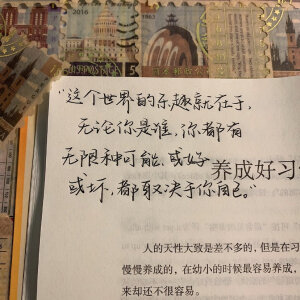 2016
1863
5
"这个世界的乐趣就在于，
无论你是谁，你都有
无限种可能，或好
或坏，都取决于你自己。"
养成好习
人的天性大致是差不多的，但是在习
慢慢养成的，在幼小的时候最容易养成，
来却还不很容易。